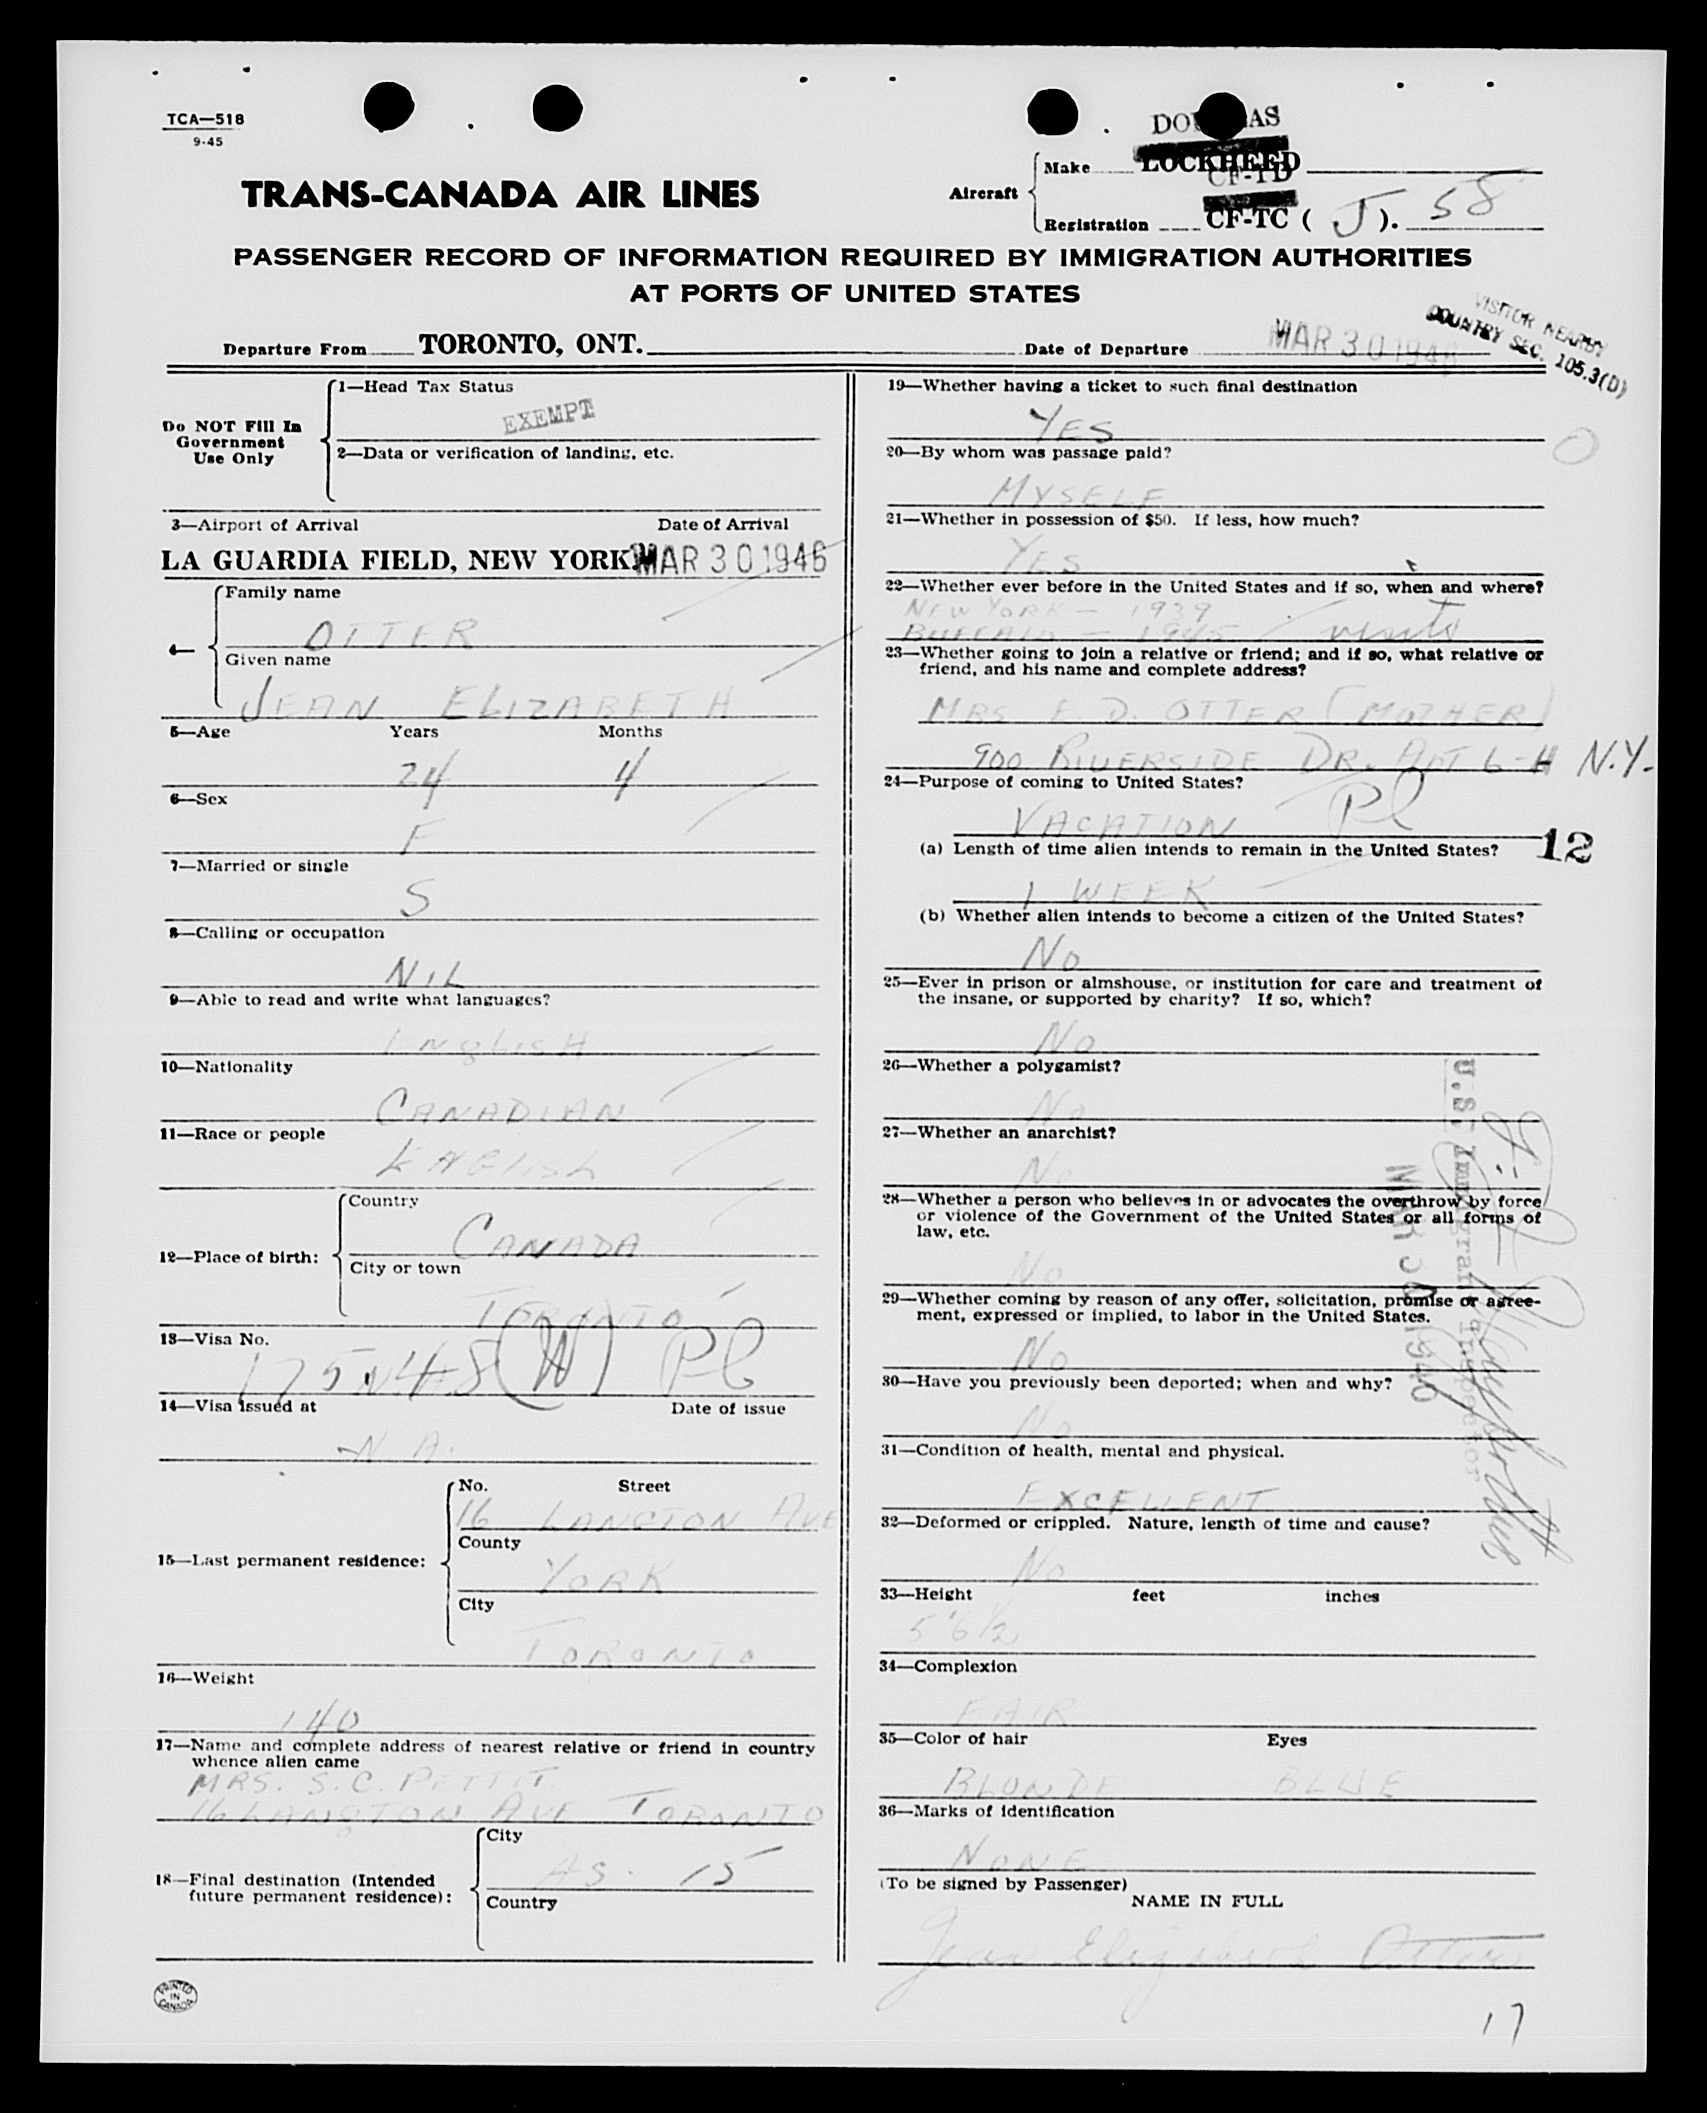 TCA—518
9-45
DOUGLAS
Aircraft
Make LOCKHEED
CF-TD
Registration CF-TC ( J ). 58
TRANS-CANADA AIR LINES
PASSENGER RECORD OF INFORMATION REQUIRED BY IMMIGRATION AUTHORITIES
AT PORTS OF UNITED STATES
VISITOR NEARBY
COUNTRY SEC. 105.3(D)
Departure From TORONTO, ONT. Date of Departure MAR 30 1946
Do NOT Fill In
Government
Use Only
1—Head Tax Status
EXEMPT
2—Data or verification of landing, etc.
3—Airport of Arrival Date of Arrival
LA GUARDIA FIELD, NEW YORK. MAR 30 1946
4—
Family name
OTTER
Given name
JEAN ELIZABETH
5—Age Years Months
24 4
6—Sex
F
7—Married or single
S
8—Calling or occupation
NIL
9—Able to read and write what languages?
ENGLISH
10—Nationality
CANADIAN
11—Race or people
ENGLISH
12—Place of birth:
Country
CANADA
City or town
TORONTO
13—Visa No.
14—Visa issued at Date of issue
N.A.
15—Last permanent residence:
No. Street
16 LANGTON AVE
County
YORK
City
TORONTO
16—Weight
140
17—Name and complete address of nearest relative or friend in country
whence alien came
MRS. S.C. PETTIT
16 LANGTON AVE TORONTO
18—Final destination (Intended
future permanent residence):
City
AS. 15
Country
PRINTED
IN
CANADA
19—Whether having a ticket to such final destination
YES
20—By whom was passage paid?
MYSELF
21—Whether in possession of $50. If less, how much?
YES
22—Whether ever before in the United States and if so, when and where?
NEW YORK — 1939
BUFFALO — 1945 visits
23—Whether going to join a relative or friend; and if so, what relative or
friend, and his name and complete address?
MRS E. D. OTTER (MOTHER)
900 RIVERSIDE DR. APT 6-H N.Y.
24—Purpose of coming to United States?
VACATION Pl
12
(a) Length of time alien intends to remain in the United States?
1 WEEK
(b) Whether alien intends to become a citizen of the United States?
No
25—Ever in prison or almshouse, or institution for care and treatment of
the insane, or supported by charity? If so, which?
No
26—Whether a polygamist?
No
27—Whether an anarchist?
No
28—Whether a person who believes in or advocates the overthrow by force
or violence of the Government of the United States or all forms of
law, etc.
No
29—Whether coming by reason of any offer, solicitation, promise or agree-
ment, expressed or implied, to labor in the United States.
No
30—Have you previously been deported; when and why?
No
U.S. Immigrant Inspector
MAR 30 1946
31—Condition of health, mental and physical.
EXCELLENT
32—Deformed or crippled. Nature, length of time and cause?
No
33—Height feet inches
5'6½
34—Complexion
FAIR
35—Color of hair Eyes
BLONDE BLUE
36—Marks of identification
NONE
(To be signed by Passenger)
NAME IN FULL
Jean Elizabeth Otter
17